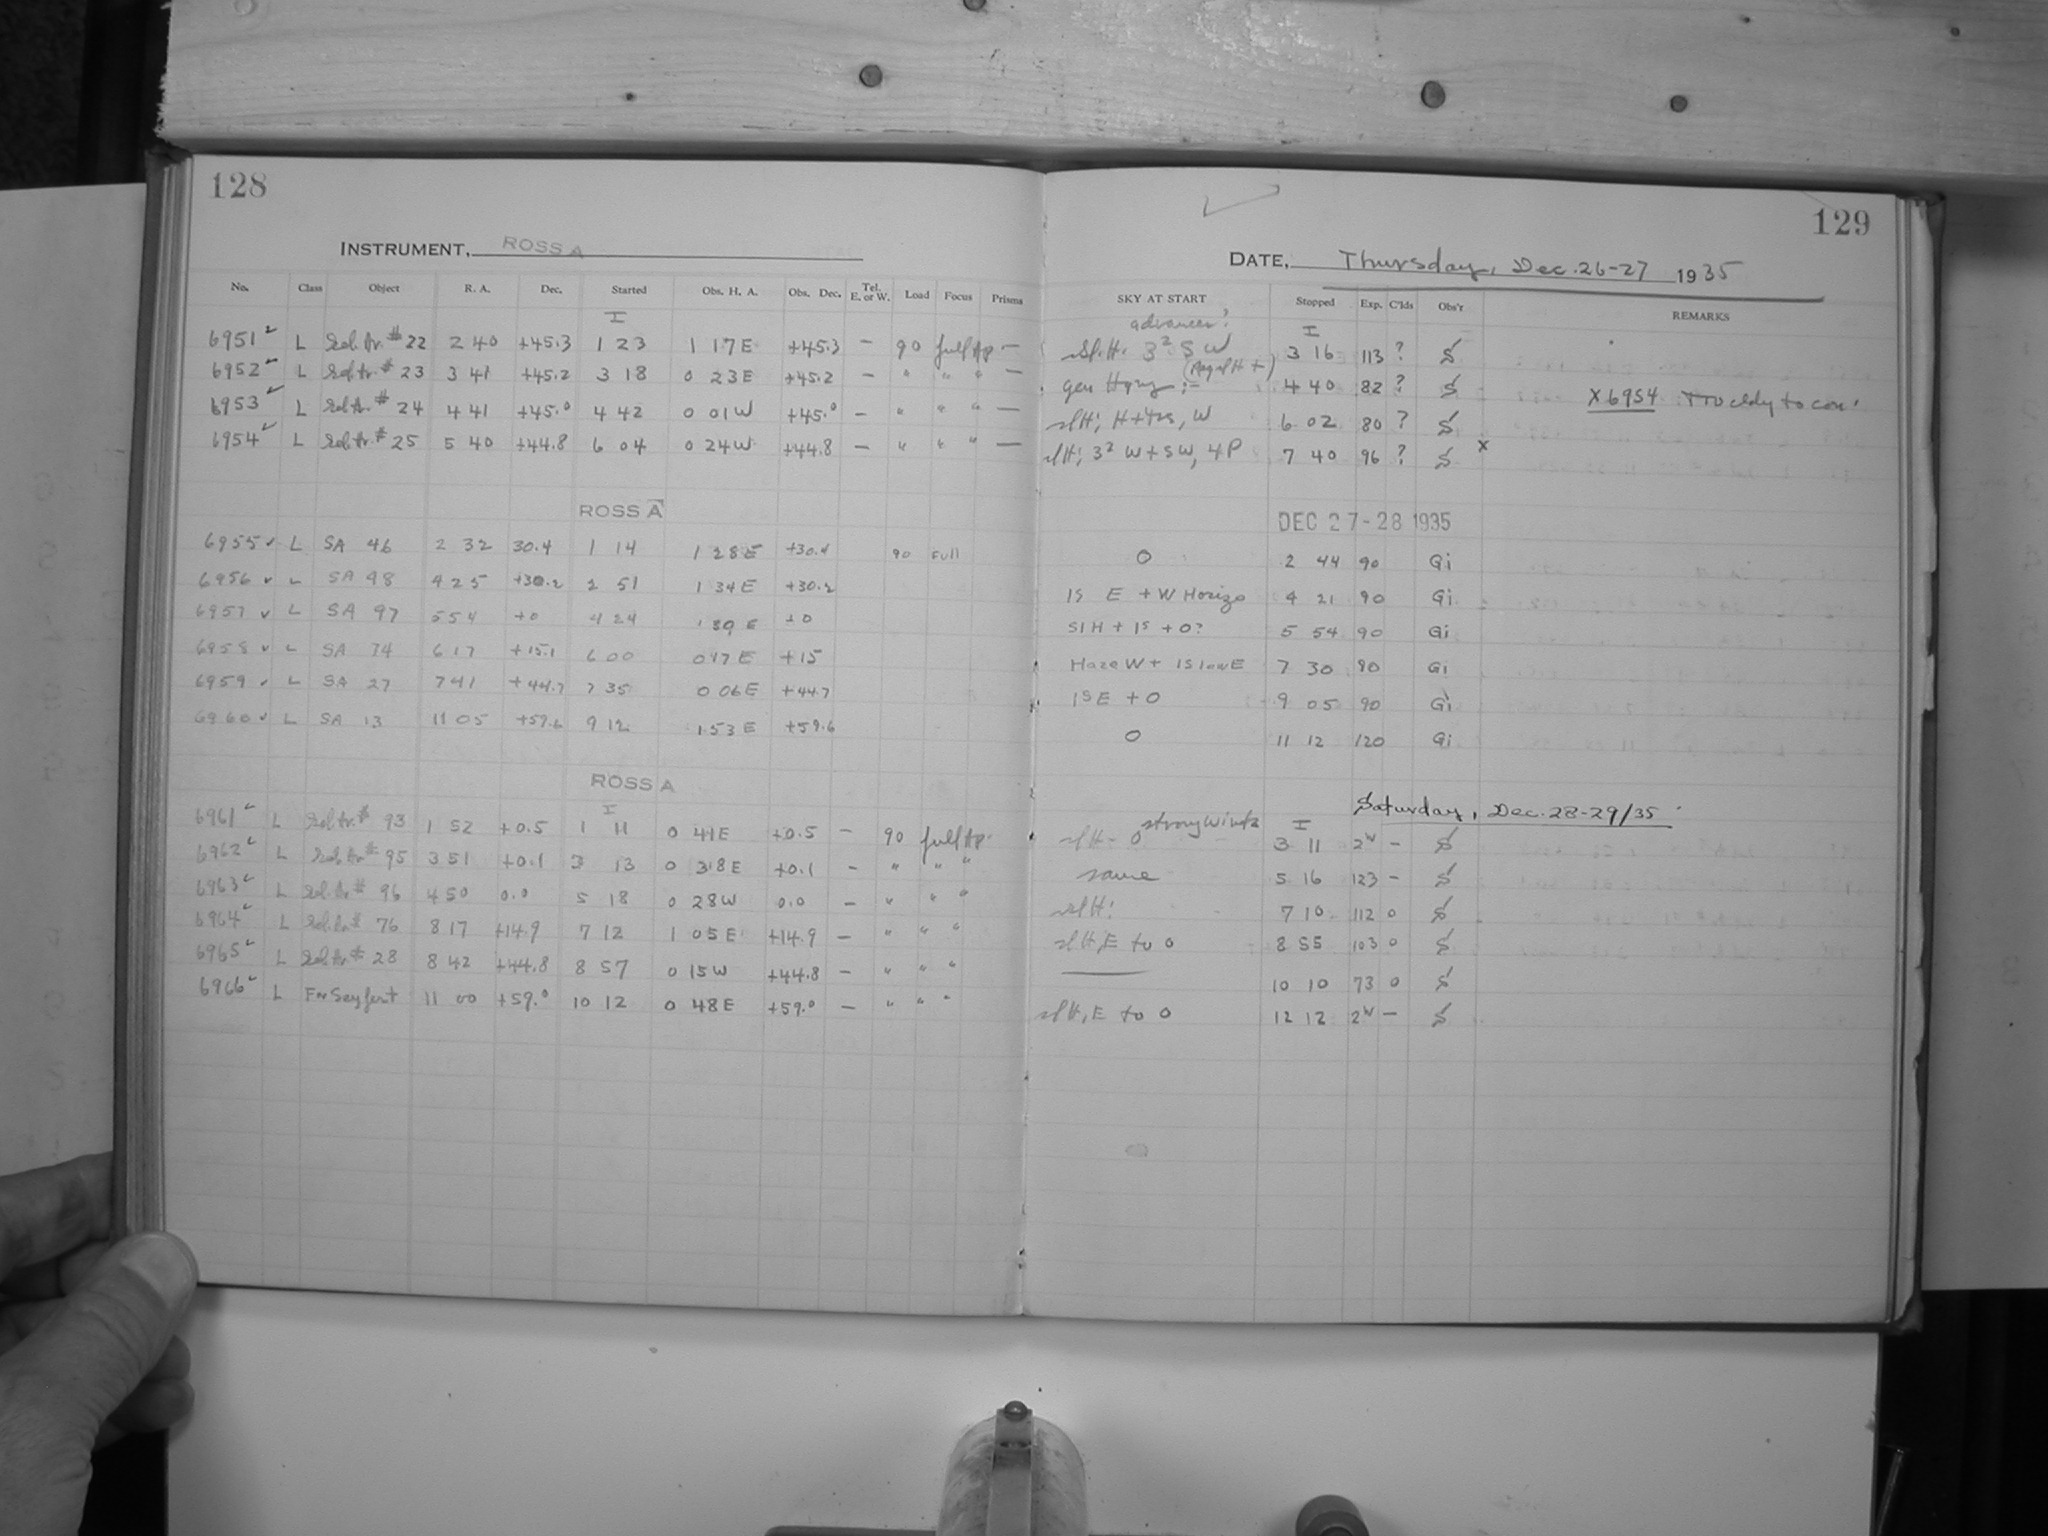 128
INSTRUMENT, ROSS A
No. Class Object R. A. Dec. Started Obs. H. A. Obs. Dec. Tel. E. or W. Load Focus Prisms
I
6951 L Sel. Ar. # 22 2 40 +45.3 1 23 1 17E +45.3 — 90 full Ap —
6952 L Sel. Ar. # 23 3 41 +45.2 3 18 0 23E +45.2 — " " " —
6953 L Sel. Ar. # 24 4 41 +45.0 4 42 0 01W +45.0 — " " " —
6954 L Sel. Ar. # 25 5 40 +44.8 6 04 0 24W +44.8 — " " " —
ROSS A
6955 L SA 46 2 32 30.4 1 14 1 28E +30.4 90 Full
6956 L SA 48 4 25 +30.2 2 51 1 34E +30.2
6957 L SA 97 5 54 +0 4 24 1 30 E +0
6958 L SA 74 6 17 +15.1 6 00 0 17 E +15
6959 L SA 27 7 41 +44.7 7 35 0 06E +44.7
6960 L SA 13 11 05 +59.6 9 12 1 53 E +59.6
ROSS A
I
6961 L Sel. Ar. # 93 1 52 +0.5 1 11 0 41E +0.5 — 90 full Ap.
6962 L Sel. Ar. # 95 3 51 +0.1 3 13 0 38E +0.1 — " " "
6963 L Sel. Ar. # 96 4 50 0.0 5 18 0 28W 0.0 — " " "
6964 L Sel. Ar. # 76 8 17 +14.9 7 12 1 05E +14.9 — " " "
6965 L Sel. Ar. # 28 8 42 +44.8 8 57 0 15W +44.8 — " " "
6966 L For Seyfert 11 00 +59.0 10 12 0 48E +59.0 — " " "
129
DATE, Thursday, Dec. 26-27 1935
SKY AT START Stopped Exp. C'lds Obs'r REMARKS
I
Sl. H. 3² SW 3 16 113 ? S
gen 4 40 82 ? S X6954
Sl H; W 6 02 80 ? S
Sl H; 3² W + SW, 4P 7 40 96 ? S X
DEC 27-28 1935
0 2 44 90 Gi
1S E + W Horizo 4 21 90 Gi
SlH + 1S + 0? 5 54 90 Gi
Haze W + 1S low E 7 30 90 Gi
1S E + 0 9 05 90 Gi
0 11 12 120 Gi
Saturday, Dec. 28-29/35
strong winds I
Sl H - 0 3 11 2ᵂ — S
same 5 16 123 — S
Sl H! 7 10 112 0 S
Sl H, E to 0 8 55 103 0 S
—— 10 10 73 0 S
Sl H, E to 0 12 12 2ᵂ — S